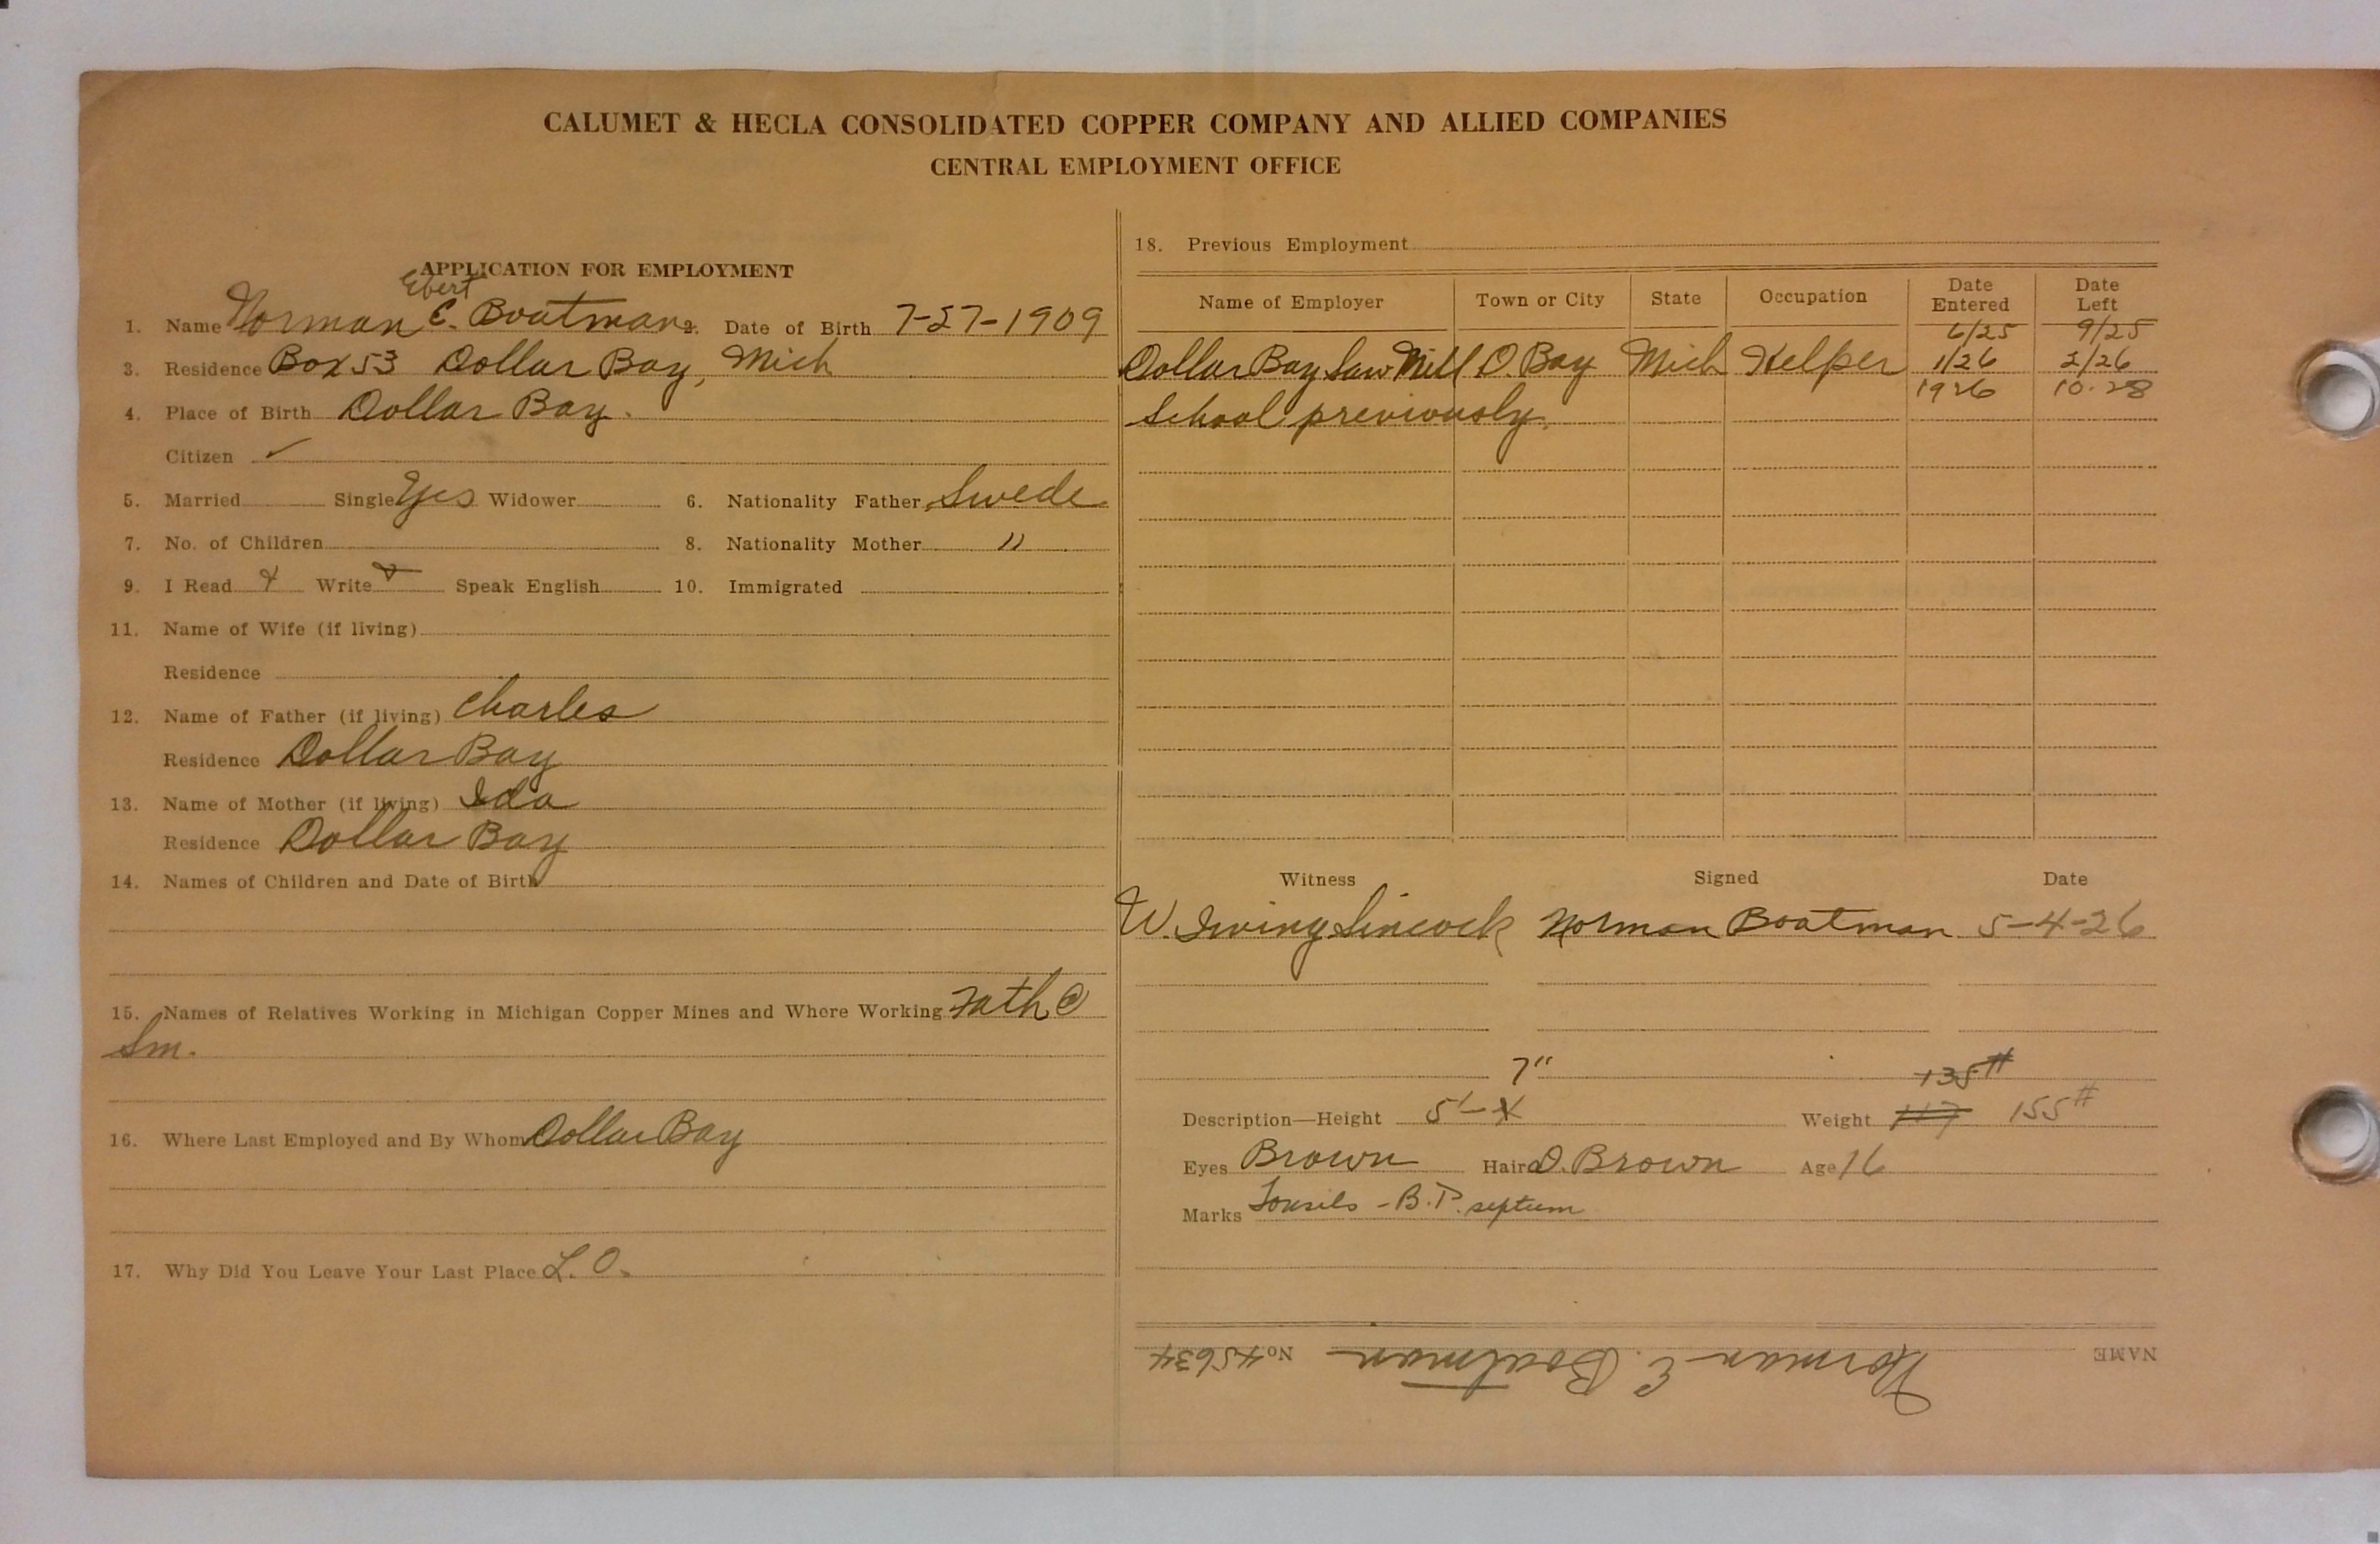 CALUMET & HECLA CONSOLIDATED COPPER COMPANY AND ALLIED COMPANIES
CENTRAL EMPLOYMENT OFFICE
APPLICATION FOR EMPLOYMENT
Ebert
1. Name Norman E. Boatman 2. Date of Birth 7-27-1909
3. Residence Box 53 Dollar Bay, Mich
4. Place of Birth Dollar Bay.
Citizen ✓
5. Married Single Yes Widower 6. Nationality Father Swede
7. No. of Children 8. Nationality Mother "
9. I Read Write Speak English 10. Immigrated
11. Name of Wife (if living)
Residence
12. Name of Father (if living) Charles
Residence Dollar Bay
13. Name of Mother (if living) Ida
Residence Dollar Bay
14. Names of Children and Date of Birth
15. Names of Relatives Working in Michigan Copper Mines and Where Working Fath C
Sm.
16. Where Last Employed and By Whom Dollar Bay
17. Why Did You Leave Your Last Place L. O.
18. Previous Employment
Name of Employer Town or City State Occupation Date Entered Date Left
6/25 9/25
Dollar Bay Saw Mill D. Bay Mich Helper 1/26 2/26
1926 10-28
School previously.
Witness Signed Date
W. Irving Sincock Norman Boatman 5-4-26
7" 135#
Description—Height 5'- Weight 117 155#
Eyes Brown Hair D. Brown Age 16
Marks Tonsils - B.P. septum
NAME Norman E. Boatman No 45634